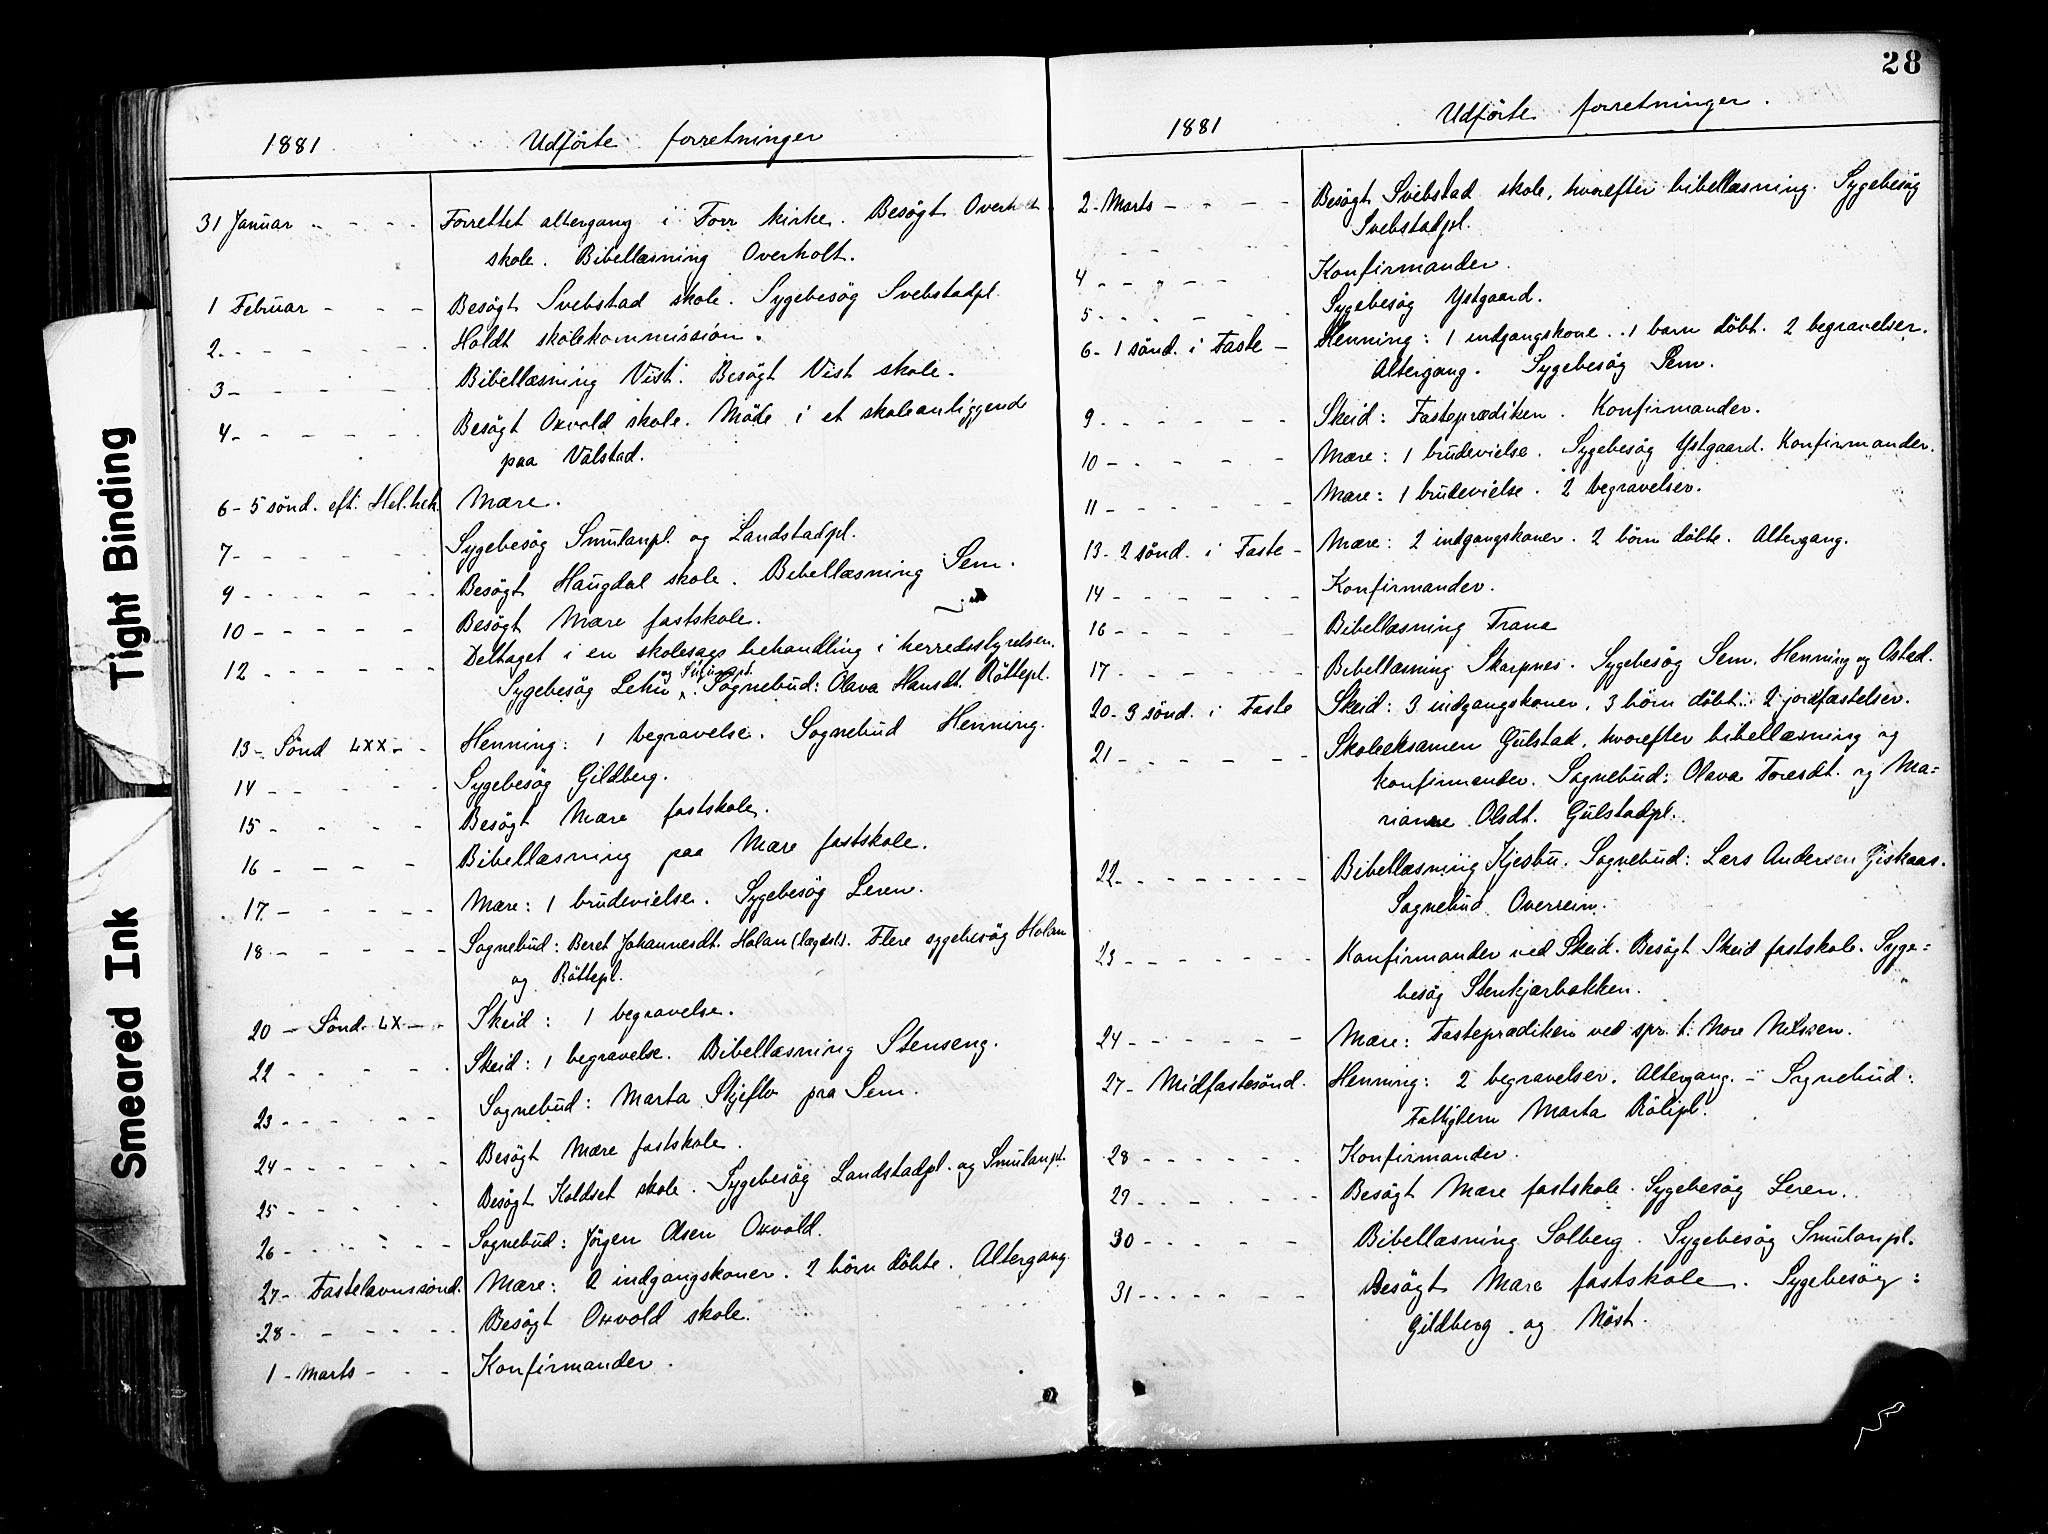 28
Tight Binding
Smeared Ink
1881 Udförte forretninger
31 Januar - - - - Forrettet altergang i Forr kirke. Besögt Overholt
skole. Bibellæsning Overholt.
1 Februar - - - Besögt Svebstad skole. Sygebesög Svebstadpl.
2. - - - - - Holdt skolekommission.
3 - - - - - Bibellæsning Vist. Besögt Vist skole.
4 - - - - - Besögt Oxvold skole. Möde i et skoleanliggende
paa Valstad.
6 - 5 sönd. eft. Hel. 3 k. Mære.
7 - - - - - Sygebesög Smulanpl. og Landstadpl.
9 - - - - - Besögt Haugdal skole. Bibellæsning Sem.
10 - - - - - Besögt Mære fastskole.
12 - - - - - Deltaget i en skolesags behandling i herredsstyrelsen.
Sygebesög Lehn. Sognebud: Olava Hansdt. Röttepl.
13 - Sönd LXX - - Henning: 1 begravelse. Sognebud Henning.
14 - - - - - Sygebesög Gildberg.
15 - - - - Besögt Mære fastskole.
16 - - - - Bibellæsning paa Mære fastskole.
17 - - - - - Mære: 1 brudevielse. Sygebesög Leren.
18 - - - - - Sognebud: Beret Johannesdt. Holan (lægdsl). Flere sygebesög Holan
og Röttepl.
20 - Sönd. LX - - Skeid: 1 begravelse.
22 - - - - - Skeid: 1 begravelse. Bibellæsning Stenseng.
23 - - - - - Sognebud: Marta Skjeflo paa Sem.
24 - - - - - Besögt Mære fastskole.
25 - - - - - Besögt Koldset skole. Sygebesög Landstadpl. og Smulanpl.
26 - - - - - Sognebud: Jörgen Olsen Oxvold.
27 - Fastelavnssönd. Mære: 2 indgangskoner. 2 börn döbte. Altergang.
28 - - - - - Besögt Oxvold skole.
1 - Marts - - - Konfirmander.
1881 Udförte forretninger.
2 - Marts - - - - Besögt Svebstad skole, hvorefter bibellæsning. Sygebesög
Svebstadpl.
4 - - - - - Konfirmander.
5 - - - - - Sygebesög Ystgaard.
6 - 1 sönd. i Faste - Henning: 1 indgangskone. 1 barn döbt. 2 begravelser.
Altergang. Sygebesög Sem.
9 - - - - - Skeid: Fasteprædiken. Konfirmander.
10 - - - - - Mære: 1 brudevielse. Sygebesög Ystgaard. Konfirmander.
11 - - - - - - Mære: 1 brudevielse. 2 begravelser.
13 - 2 sönd. i Faste - Mære: 2 indgangskoner. 2 börn döbte. Altergang.
14 - - - - - - Konfirmander.
16 - - - - - Bibellæsning Trana
17 - - - - - - Bibellæsning Skarpnes. Sygebesög Sem, Henning og Osted.
20 - 3 sönd. i Faste Skeid: 3 indgangskoner, 3 börn döbt. 2 jordfæstelser.
21 - - - - - - Skoleeksamen Gulstad, hvorefter bibellæsning og
konfirmander. Sognebud: Olava Toresdt. og Ma=
rianne Olsdt. Gulstadpl.
22 - - - - - - - - Bibellæsning Kjesbu. Sognebud: Lars Andersen Giskaas.
Sognebud Overrein.
23 - - - - - - Konfirmander ved Skeid. Besögt Skeid fastskole. Syge=
besög Stenkjærbakken.
24 - - - - - - Mære: Fasteprædiken ved spr. t. More Nilssen.
27 - Midfastesönd. Henning: 2 begravelser. Altergang. - Sognebud:
Fattiglem Marta Rölipl.
28 - - - - - - Konfirmander.
29 - - - - - - Besögt Mære fastskole. Sygebesög Leren.
30 - - - - - Bibellæsning Solberg. Sygebesög Smulanpl.
31 - - - - - - Besögt Mære fastskole. Sygebesög:
Gildberg og Nöst.